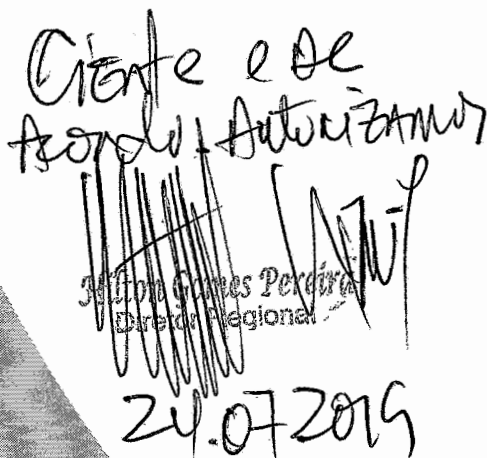 Ciente e de
Acordo. Autorizamos
Milton Gomes Pereira
Diretor Regional
24.07.2019